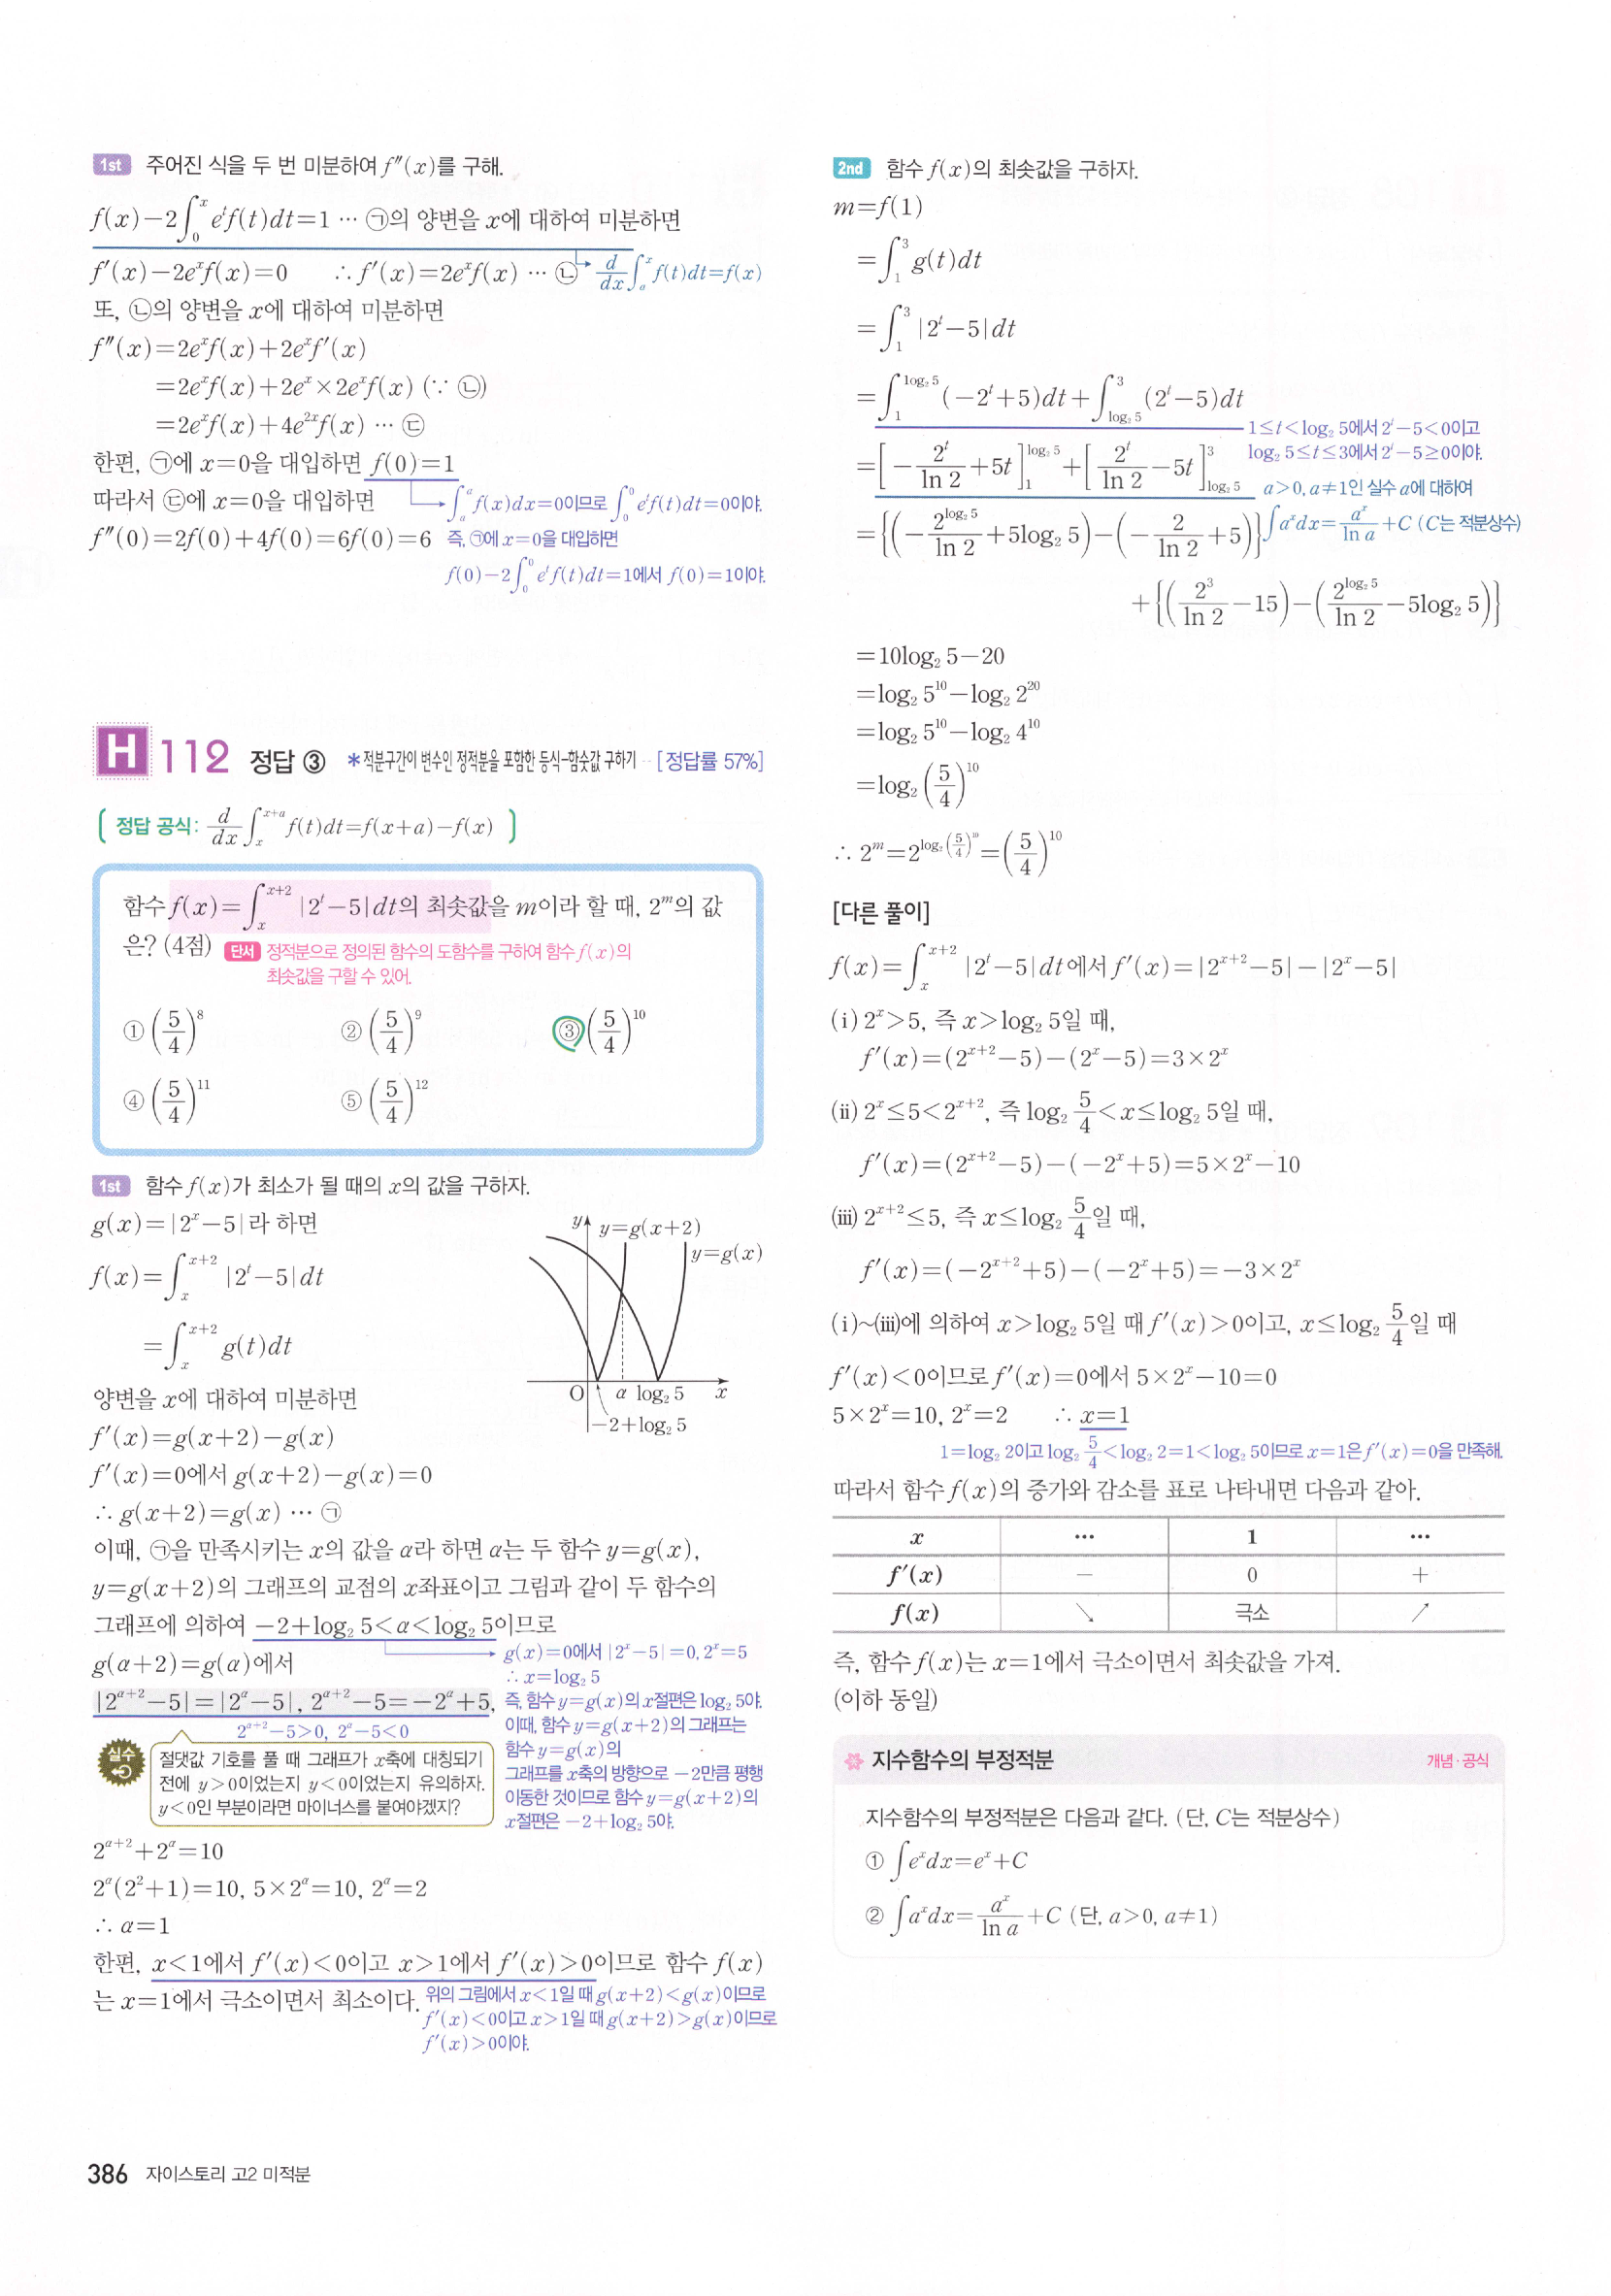 1st 주어진 식을 두 번 미분하여 f″(x)를 구해.
f(x)−2∫₀ˣ eᵗf(t)dt=1 ⋯ ㉠의 양변을 x에 대하여 미분하면
f′(x)−2eˣf(x)=0 ∴ f′(x)=2eˣf(x) ⋯ ㉡ d/dx ∫ₐˣ f(t)dt=f(x)
또, ㉡의 양변을 x에 대하여 미분하면
f″(x)=2eˣf(x)+2eˣf′(x)
=2eˣf(x)+2eˣ×2eˣf(x) (∵ ㉡)
=2eˣf(x)+4e²ˣf(x) ⋯ ㉢
한편, ㉠에 x=0을 대입하면 f(0)=1
따라서 ㉢에 x=0을 대입하면 ∫ₐᵃ f(x)dx=0이므로 ∫₀⁰ eᵗf(t)dt=0이야.
f″(0)=2f(0)+4f(0)=6f(0)=6 즉, ㉠에 x=0을 대입하면
f(0)−2∫₀⁰ eᵗf(t)dt=1에서 f(0)=1이야.
H 112 정답 ③ *적분구간이 변수인 정적분을 포함한 등식-함숫값 구하기 [정답률 57%]
( 정답 공식: d/dx ∫ₓˣ⁺ᵃ f(t)dt=f(x+a)−f(x) )
함수 f(x)=∫ₓˣ⁺² |2ᵗ−5|dt의 최솟값을 m이라 할 때, 2ᵐ의 값
은? (4점) 단서 정적분으로 정의된 함수의 도함수를 구하여 함수 f(x)의
최솟값을 구할 수 있어.
① (5/4)⁸ ② (5/4)⁹ ③ (5/4)¹⁰
④ (5/4)¹¹ ⑤ (5/4)¹²
1st 함수 f(x)가 최소가 될 때의 x의 값을 구하자.
g(x)=|2ˣ−5|라 하면
f(x)=∫ₓˣ⁺² |2ᵗ−5|dt
=∫ₓˣ⁺² g(t)dt
양변을 x에 대하여 미분하면
f′(x)=g(x+2)−g(x)
f′(x)=0에서 g(x+2)−g(x)=0
∴ g(x+2)=g(x) ⋯ ㉠
y y=g(x+2)
y=g(x)
O α log₂ 5 x
−2+log₂ 5
이때, ㉠을 만족시키는 x의 값을 α라 하면 α는 두 함수 y=g(x),
y=g(x+2)의 그래프의 교점의 x좌표이고 그림과 같이 두 함수의
그래프에 의하여 −2+log₂ 5<α<log₂ 5이므로
g(α+2)=g(α)에서
|2^(α+2)−5|=|2^α−5|, 2^(α+2)−5=−2^α+5,
2^(α+2)−5>0, 2^α−5<0
g(x)=0에서 |2ˣ−5|=0, 2ˣ=5
∴ x=log₂ 5
즉, 함수 y=g(x)의 x절편은 log₂ 5야.
이때, 함수 y=g(x+2)의 그래프는
함수 y=g(x)의
그래프를 x축의 방향으로 −2만큼 평행
이동한 것이므로 함수 y=g(x+2)의
x절편은 −2+log₂ 5야.
실수
절댓값 기호를 풀 때 그래프가 x축에 대칭되기
전에 y>0이었는지 y<0이었는지 유의하자.
y<0인 부분이라면 마이너스를 붙여야겠지?
2^(α+2)+2^α=10
2^α(2²+1)=10, 5×2^α=10, 2^α=2
∴ α=1
한편, x<1에서 f′(x)<0이고 x>1에서 f′(x)>0이므로 함수 f(x)
는 x=1에서 극소이면서 최소이다. 위의 그림에서 x<1일 때 g(x+2)<g(x)이므로
f′(x)<0이고 x>1일 때 g(x+2)>g(x)이므로
f′(x)>0이야.
2nd 함수 f(x)의 최솟값을 구하자.
m=f(1)
=∫₁³ g(t)dt
=∫₁³ |2ᵗ−5|dt
=∫₁^(log₂ 5) (−2ᵗ+5)dt+∫_(log₂ 5)^3 (2ᵗ−5)dt
1≤t<log₂ 5에서 2ᵗ−5<0이고
log₂ 5≤t≤3에서 2ᵗ−5≥0이야.
=[−2ᵗ/ln 2+5t]₁^(log₂ 5)+[2ᵗ/ln 2−5t]_(log₂ 5)^3
a>0, a≠1인 실수 a에 대하여
∫aˣdx=aˣ/ln a+C (C는 적분상수)
={(−2^(log₂ 5)/ln 2+5log₂ 5)−(−2/ln 2+5)}
+{(2³/ln 2−15)−(2^(log₂ 5)/ln 2−5log₂ 5)}
=10log₂ 5−20
=log₂ 5¹⁰−log₂ 2²⁰
=log₂ 5¹⁰−log₂ 4¹⁰
=log₂ (5/4)¹⁰
∴ 2ᵐ=2^(log₂ (5/4)¹⁰)=(5/4)¹⁰
[다른 풀이]
f(x)=∫ₓˣ⁺² |2ᵗ−5|dt에서 f′(x)=|2ˣ⁺²−5|−|2ˣ−5|
(ⅰ) 2ˣ>5, 즉 x>log₂ 5일 때,
f′(x)=(2ˣ⁺²−5)−(2ˣ−5)=3×2ˣ
(ⅱ) 2ˣ≤5<2ˣ⁺², 즉 log₂ 5/4<x≤log₂ 5일 때,
f′(x)=(2ˣ⁺²−5)−(−2ˣ+5)=5×2ˣ−10
(ⅲ) 2ˣ⁺²≤5, 즉 x≤log₂ 5/4일 때,
f′(x)=(−2ˣ⁺²+5)−(−2ˣ+5)=−3×2ˣ
(ⅰ)~(ⅲ)에 의하여 x>log₂ 5일 때 f′(x)>0이고, x≤log₂ 5/4일 때
f′(x)<0이므로 f′(x)=0에서 5×2ˣ−10=0
5×2ˣ=10, 2ˣ=2 ∴ x=1
1=log₂ 2이고 log₂ 5/4<log₂ 2=1<log₂ 5이므로 x=1은 f′(x)=0을 만족해.
따라서 함수 f(x)의 증가와 감소를 표로 나타내면 다음과 같아.
x ⋯ 1 ⋯
f′(x) − 0 +
f(x) ↘ 극소 ↗
즉, 함수 f(x)는 x=1에서 극소이면서 최솟값을 가져.
(이하 동일)
지수함수의 부정적분 개념·공식
지수함수의 부정적분은 다음과 같다. (단, C는 적분상수)
① ∫eˣdx=eˣ+C
② ∫aˣdx=aˣ/ln a+C (단, a>0, a≠1)
386 자이스토리 고2 미적분